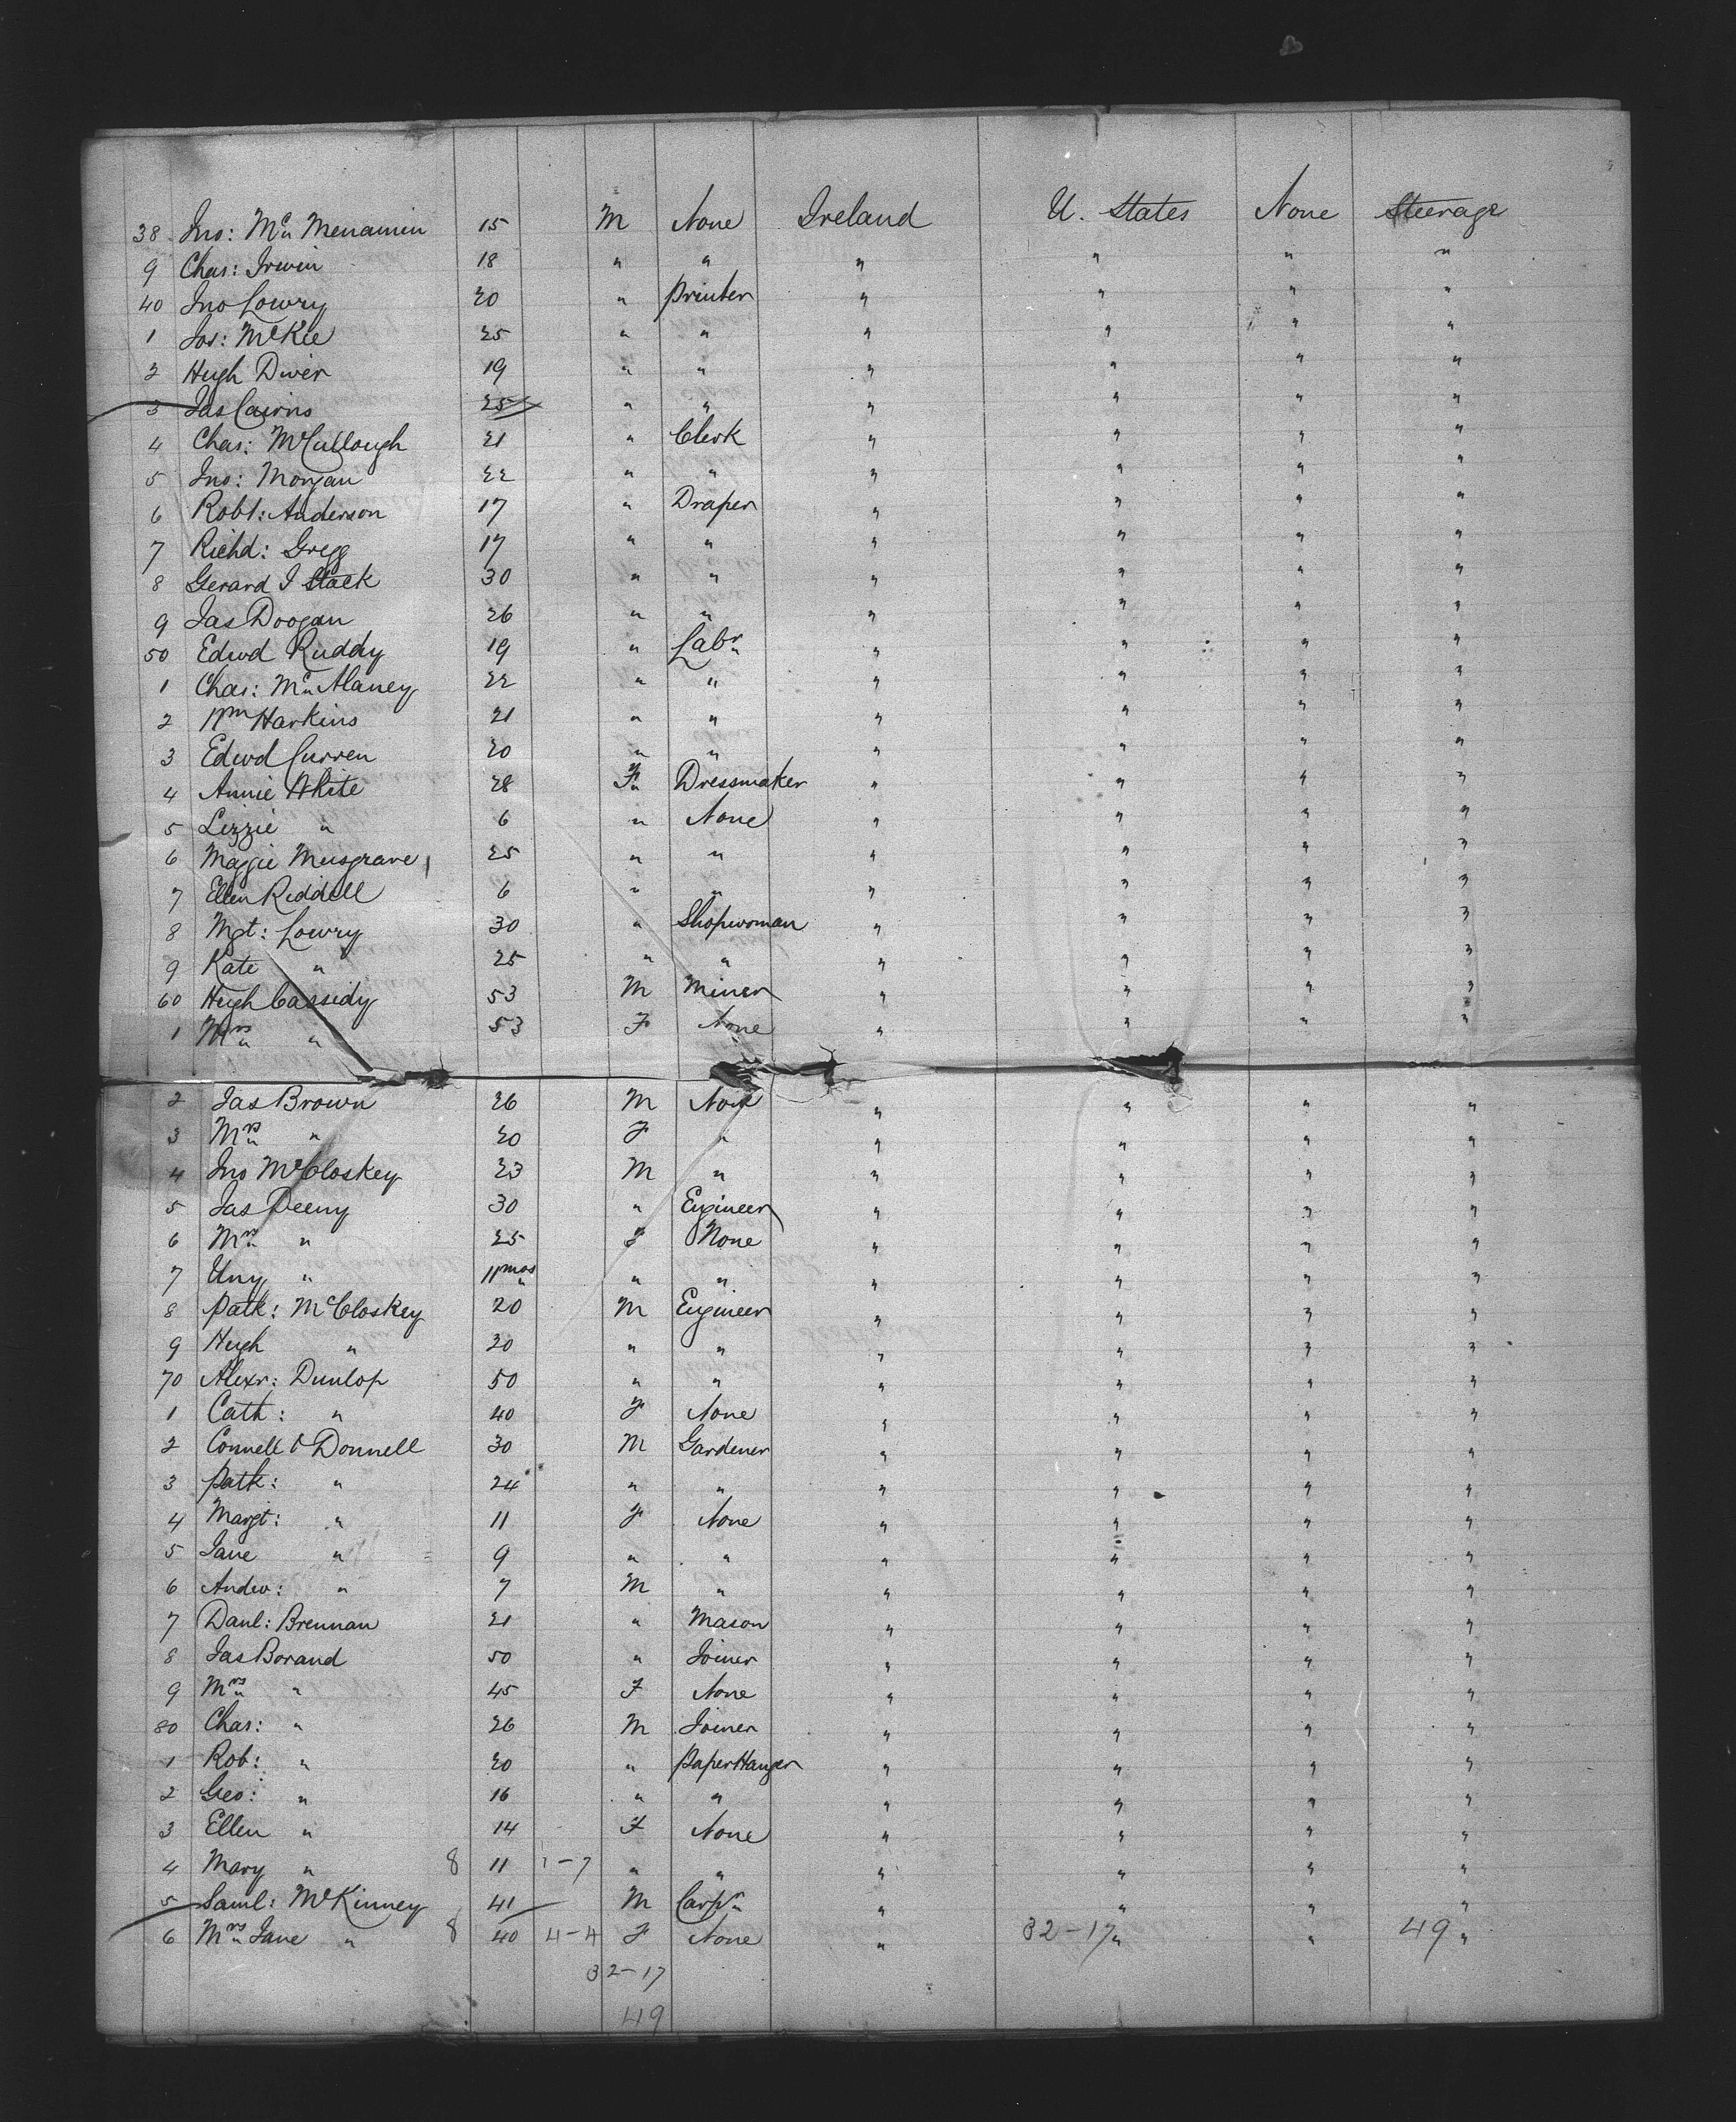 38 Jno: Mc Menamin 15 M None Ireland U. States None Steerage
9 Chas: Irwin 18 " " " " " "
40 Jno Lowry 20 " Printer " " " "
1 Jos: McKee 25 " " " " " "
2 Hugh Diver 19 " " " " " "
3 Jas Cairns 25 " " " " " "
4 Chas: McCullough 21 " Clerk " " " "
5 Jno: Morgan 22 " " " " " "
6 Robt: Anderson 17 " Draper " " " "
7 Richd: Gregg 17 " " " " " "
8 Gerard J Stack 30 " " " " " "
9 Jas Doogan 26 " " " " " "
50 Edwd Ruddy 19 " Labr " " " "
1 Chas: Mc Alaney 22 " " " " " "
2 Wm Harkins 21 " " " " " "
3 Edwd Curren 20 " " " " " "
4 Annie White 28 F Dressmaker " " " "
5 Lizzie " 6 " None " " " "
6 Maggie Musgrave 25 " " " " " "
7 Ellen Riddell 6 " " " " " "
8 Mgt: Lowry 30 " Shopwoman " " " "
9 Kate " 25 " " " " " "
60 Hugh Cassidy 53 M Miner " " " "
1 Mrs " 53 F None " " " "
2 Jas Brown 26 M None " " " "
3 Mrs " 20 F " " " " "
4 Jno McCloskey 23 M " " " " "
5 Jas Deeny 30 " Engineer " " " "
6 Mrs " 25 F None " " " "
7 Uny " 11 mos " " " " " "
8 Patk: McCloskey 20 M Engineer " " " "
9 Hugh " 20 " " " " " "
70 Alexr: Dunlop 50 " " " " " "
1 Cath: " 40 F None " " " "
2 Connell O'Donnell 30 M Gardener " " " "
3 Patk: " 24 " " " " " "
4 Margt: " 11 F None " " " "
5 Jane " 9 " " " " " "
6 Andw: " 7 M " " " " "
7 Danl: Brennan 21 " Mason " " " "
8 Jas Borand 50 " Joiner " " " "
9 Mrs " 45 F None " " " "
80 Chas: " 26 M Joiner " " " "
1 Rob: " 20 " Paper Hanger " " " "
2 Geo: " 16 " " " " " "
3 Ellen " 14 F None " " " "
4 Mary " 8 11 1-7 " " " " " "
5 Saml: McKinney 41 M Carpr " " " "
6 Mrs Jane " 8 40 4-4 F None " 32-17 " " 49 "
32-17
49